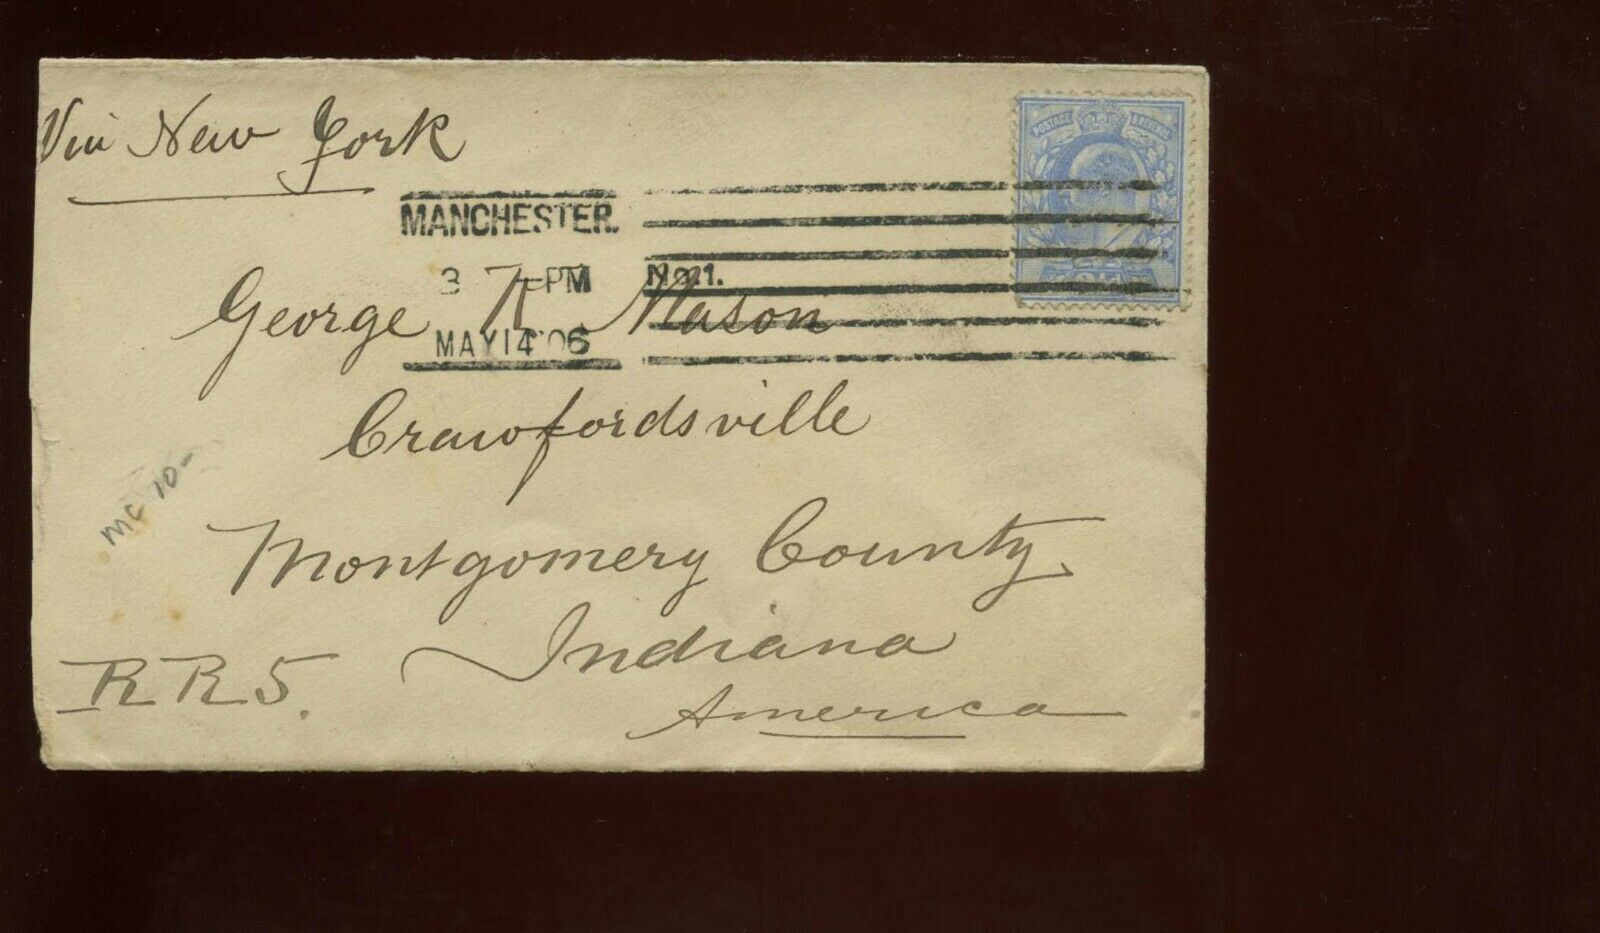 Via New York
POSTAGE & REVENUE
MANCHESTER.
3 PM No.1.
George Mason
MAY 14 06
Crawfordsville
MC 10-
Montgomery County
Indiana
RR5.
America